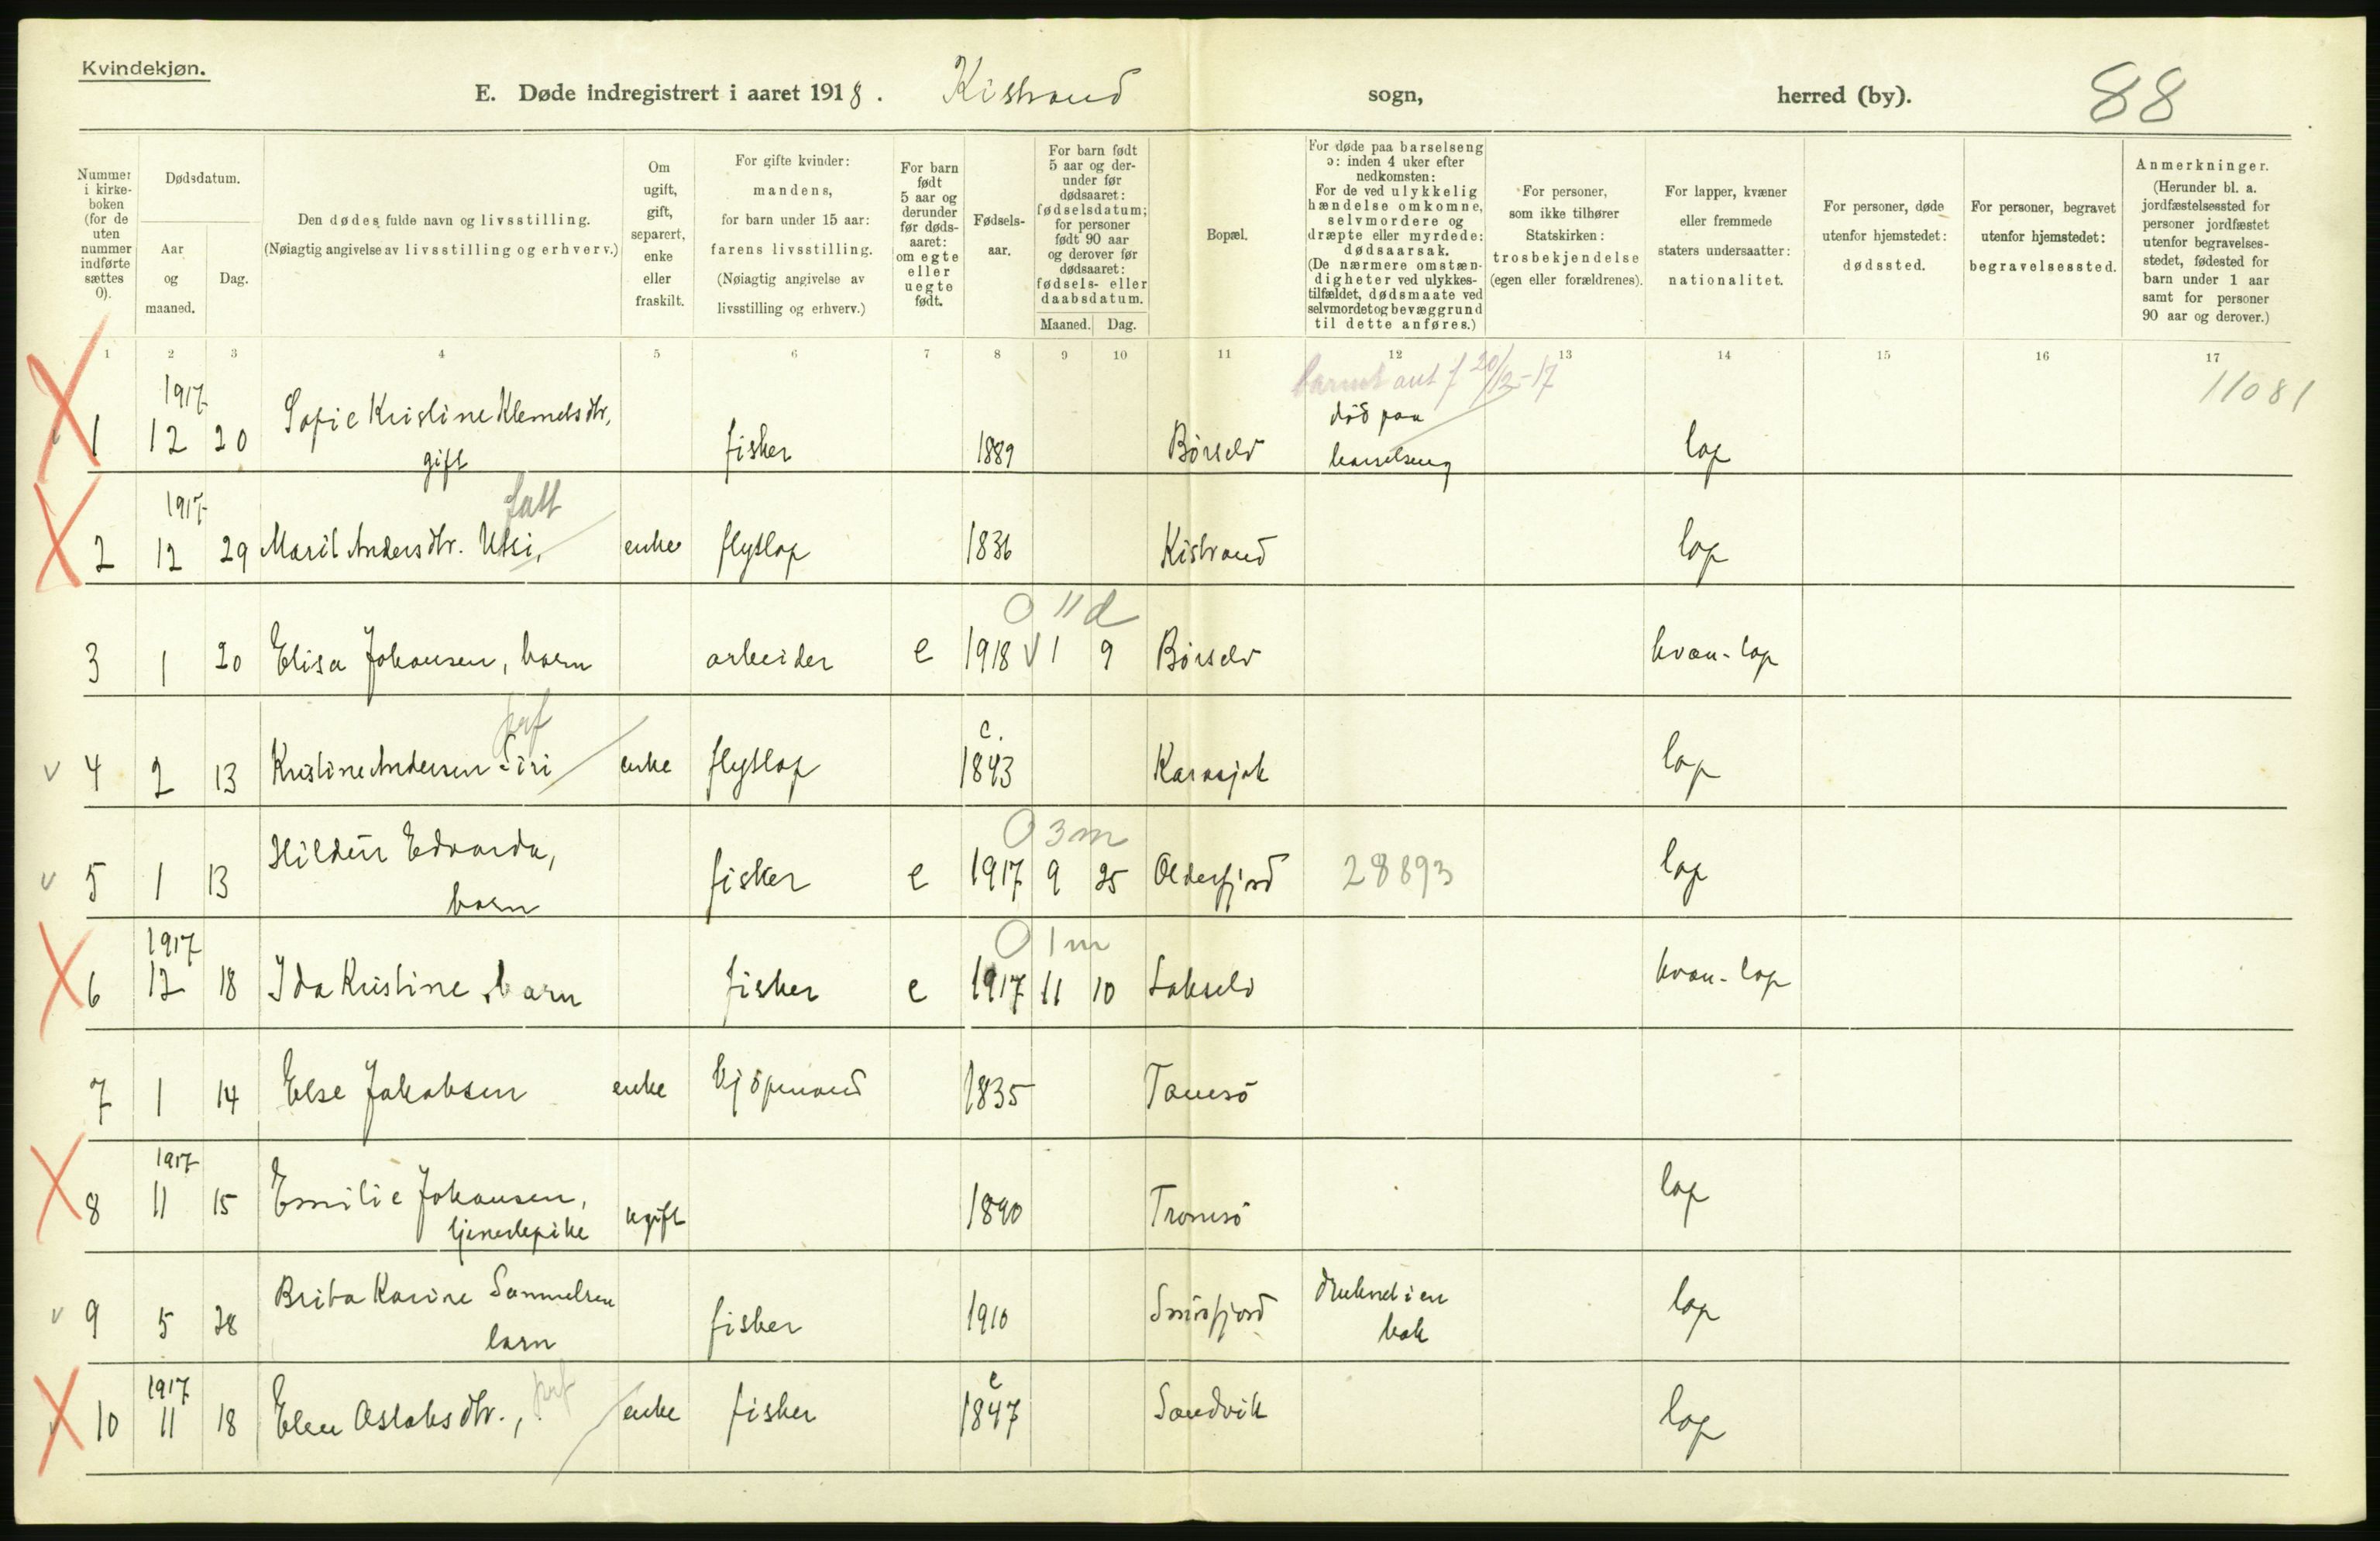 Kvindekjøn.
E. Døde indregistrert i aaret 1918. Kistrand sogn, herred (by). 88
Nummer i kirke- boken (for de uten nummer indførte sættes 0).
Dødsdatum.
Aar og maaned.
Dag.
Den dødes fulde navn og livsstilling.
(Nøiagtig angivelse av livsstilling og erhverv.)
Om ugift, gift, separert, enke eller fraskilt.
For gifte kvinder:
mandens,
for barn under 15 aar:
farens livsstilling.
(Nøiagtig angivelse av
livsstilling og erhverv.)
For barn født 5 aar og derunder før døds- aaret: om egte eller uegte født.
Fødsels- aar.
For barn født 5 aar og der- under før dødsaaret: fødselsdatum; for personer født 90 aar og derover før dødsaaret: fødsels- eller daabsdatum.
Maaned. Dag.
Bopæl.
For døde paa barselseng
ɔ: inden 4 uker efter
nedkomsten:
For de ved ulykkelig
hændelse omkomne,
selvmordere og
dræpte eller myrdede:
dødsaarsak.
(De nærmere omstæn-
digheter ved ulykkes-
tilfældet, dødsmaate ved
selvmordet og bevæggrund
til dette anføres.)
For personer,
som ikke tilhører
Statskirken:
trosbekjendelse
(egen eller forældrenes).
For lapper, kvæner
eller fremmede
staters undersaatter:
nationalitet.
For personer, døde
utenfor hjemstedet:
dødssted.
For personer, begravet
utenfor hjemstedet:
begravelsessted.
Anmerkninger.
(Herunder bl. a.
jordfæstelsessted for
personer jordfæstet
utenfor begravelses-
stedet, fødested for
barn under 1 aar
samt for personer
90 aar og derover.)
1 2 3 4 5 6 7 8 9 10 11 12 13 14 15 16 17
20/12-17
11081
1917
1 12 20 Sofie Kristine Klemetsdtr, gift fisker 1889 Børselv død paa barselseng lap
1917 fatt
2 12 29 Marit Andersdtr. Utsi, enke flytlap 1836 Kistrand lap
0 11d
3 1 20 Elisa Johansen, barn arbeider e 1918 1 9 Børselv kvæn-lap
prf
c.
4 2 13 Kristine Andersen Siri enke flytlap 1843 Karasjok lap
0 3m
5 1 13 Hildur Edvarda, barn fisker e 1917 9 25 Olderfjord 28893 lap
1917 0 1m
6 12 18 Ida Kristine, barn fisker e 1917 11 10 Lakselv kvæn-lap
7 1 14 Else Jakobsen enke kjøpmand 1835 Tamsø
1917
8 11 15 Emilie Johansen, tjenestepike ugift 1890 Tromsø lap
9 5 28 Brita Karine Sammelsen barn fisker 1910 Smørfjord druknet i en bæk lap
1917 prf c
10 11 18 Elen Aslaksdtr., enke fisker 1847 Sandvik lap